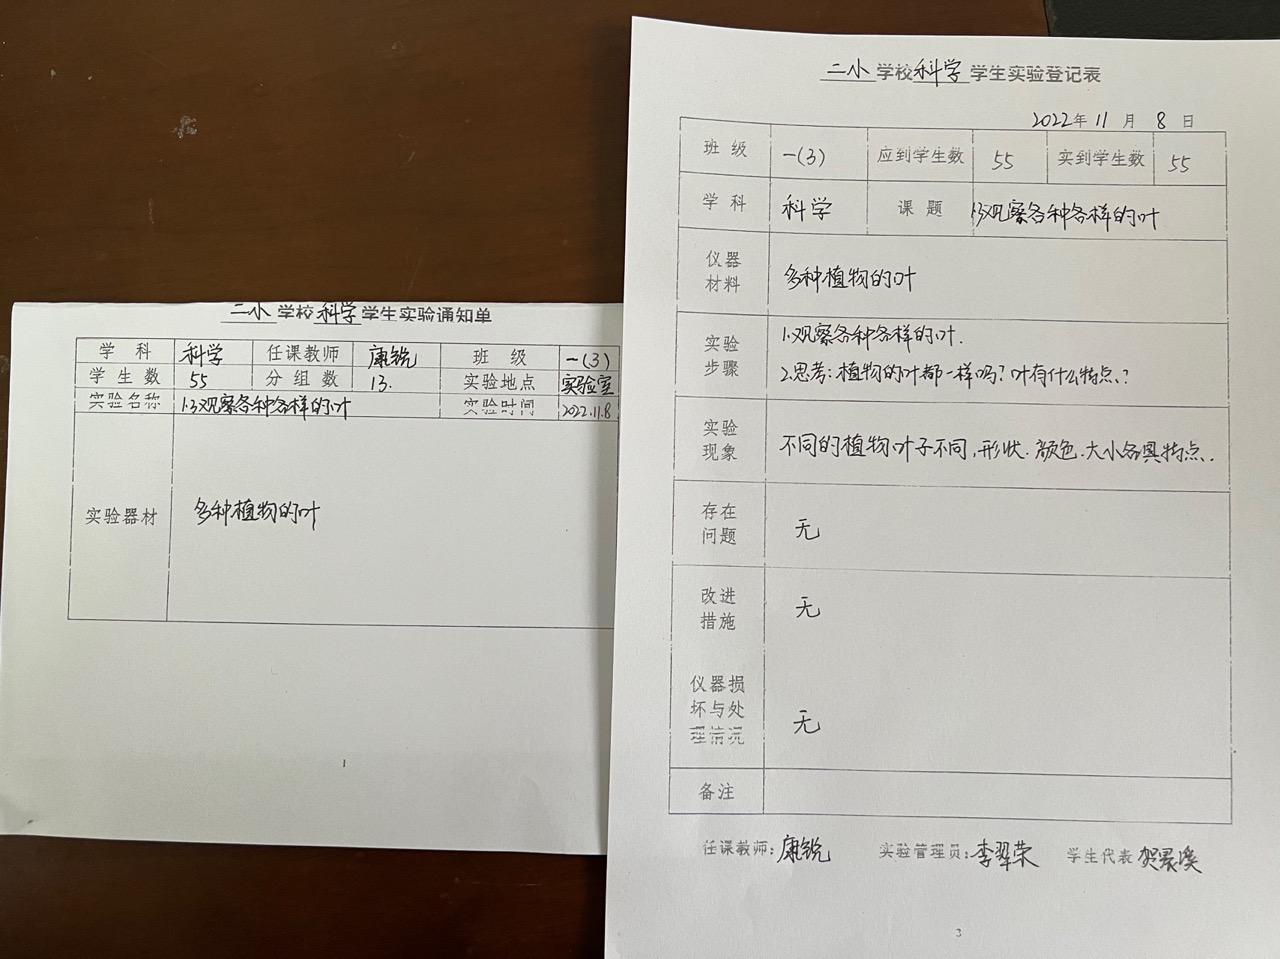 二小学校科学学生实验通知单
学科 科学 任课教师 康锐 班级 一(3)
学生数 55 分组数 13. 实验地点 实验室
实验名称 1.3观察各种各样的叶 实验时间 2022.11.8
实验器材 多种植物的叶
1
二小学校科学学生实验登记表
2022年11月8日
班级 一(3) 应到学生数 55 实到学生数 55
学科 科学 课题 1.3观察各种各样的叶
仪器材料 多种植物的叶
实验步骤 1.观察各种各样的叶.
2.思考:植物的叶都一样吗?叶有什么特点.?
实验现象 不同的植物叶子不同,形状.颜色.大小各具特点.
存在问题 无
改进措施 无
仪器损坏与处理情况 无
备注
任课教师:康锐 实验管理员:李翠荣 学生代表 贺
3